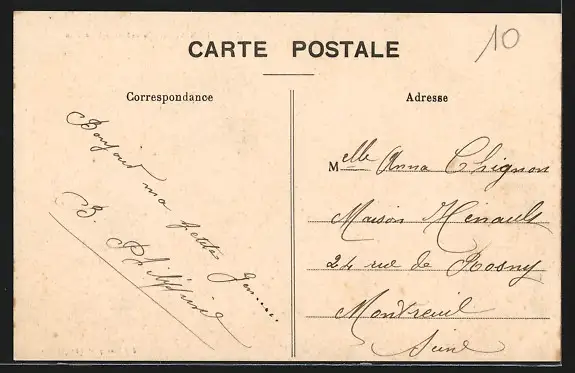 10
CARTE POSTALE
Correspondance
Bonjour ma petite
B. Philippine
Adresse
Melle Anna Chignon
Maison Hénault
24 rue de Rosny
Montreuil
Seine